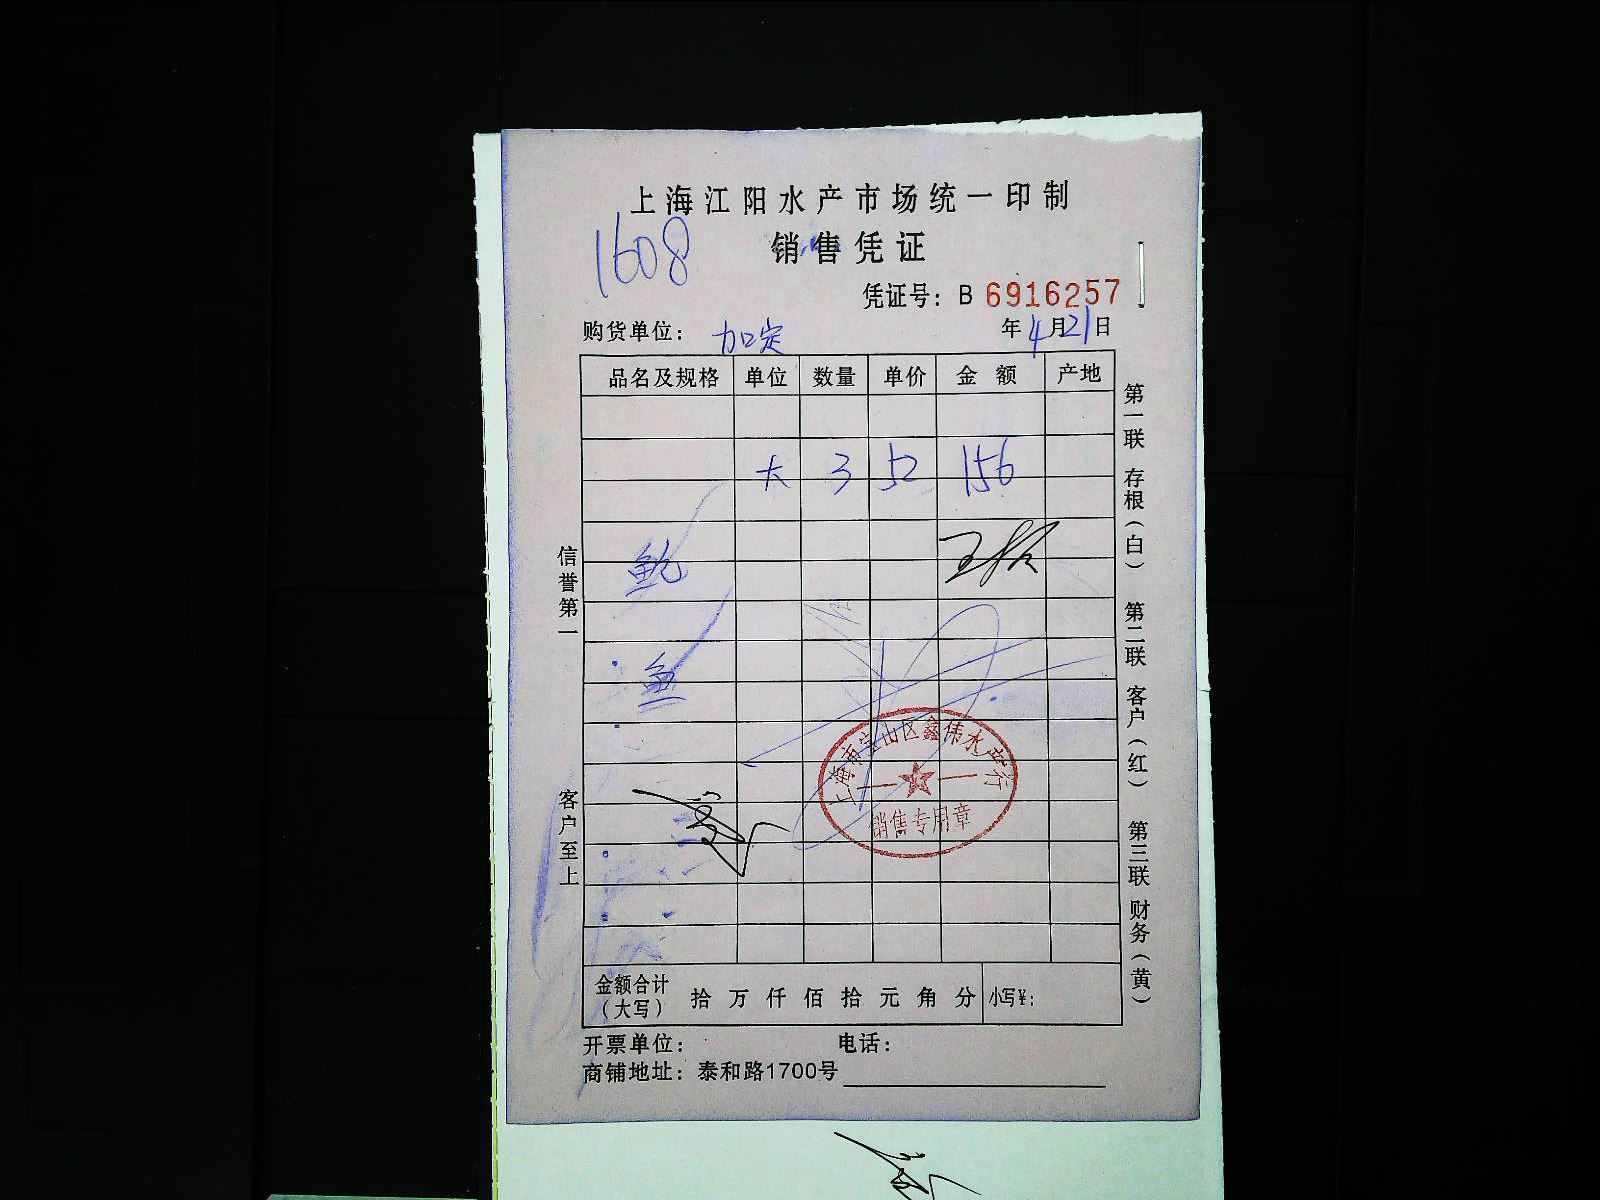 上海江阳水产市场统一印制
1608
销售凭证
凭证号：B 6916257
购货单位： 加定
年4月21日
品名及规格 单位 数量 单价 金额 产地
大 3 52 156
鲍
鱼
上海市宝山区鑫伟水产行
销售专用章
金额合计（大写） 拾 万 仟 佰 拾 元 角 分 小写¥：
开票单位： 电话：
商铺地址：泰和路1700号
信誉第一
客户至上
第一联 存根（白）
第二联 客户（红）
第三联 财务（黄）